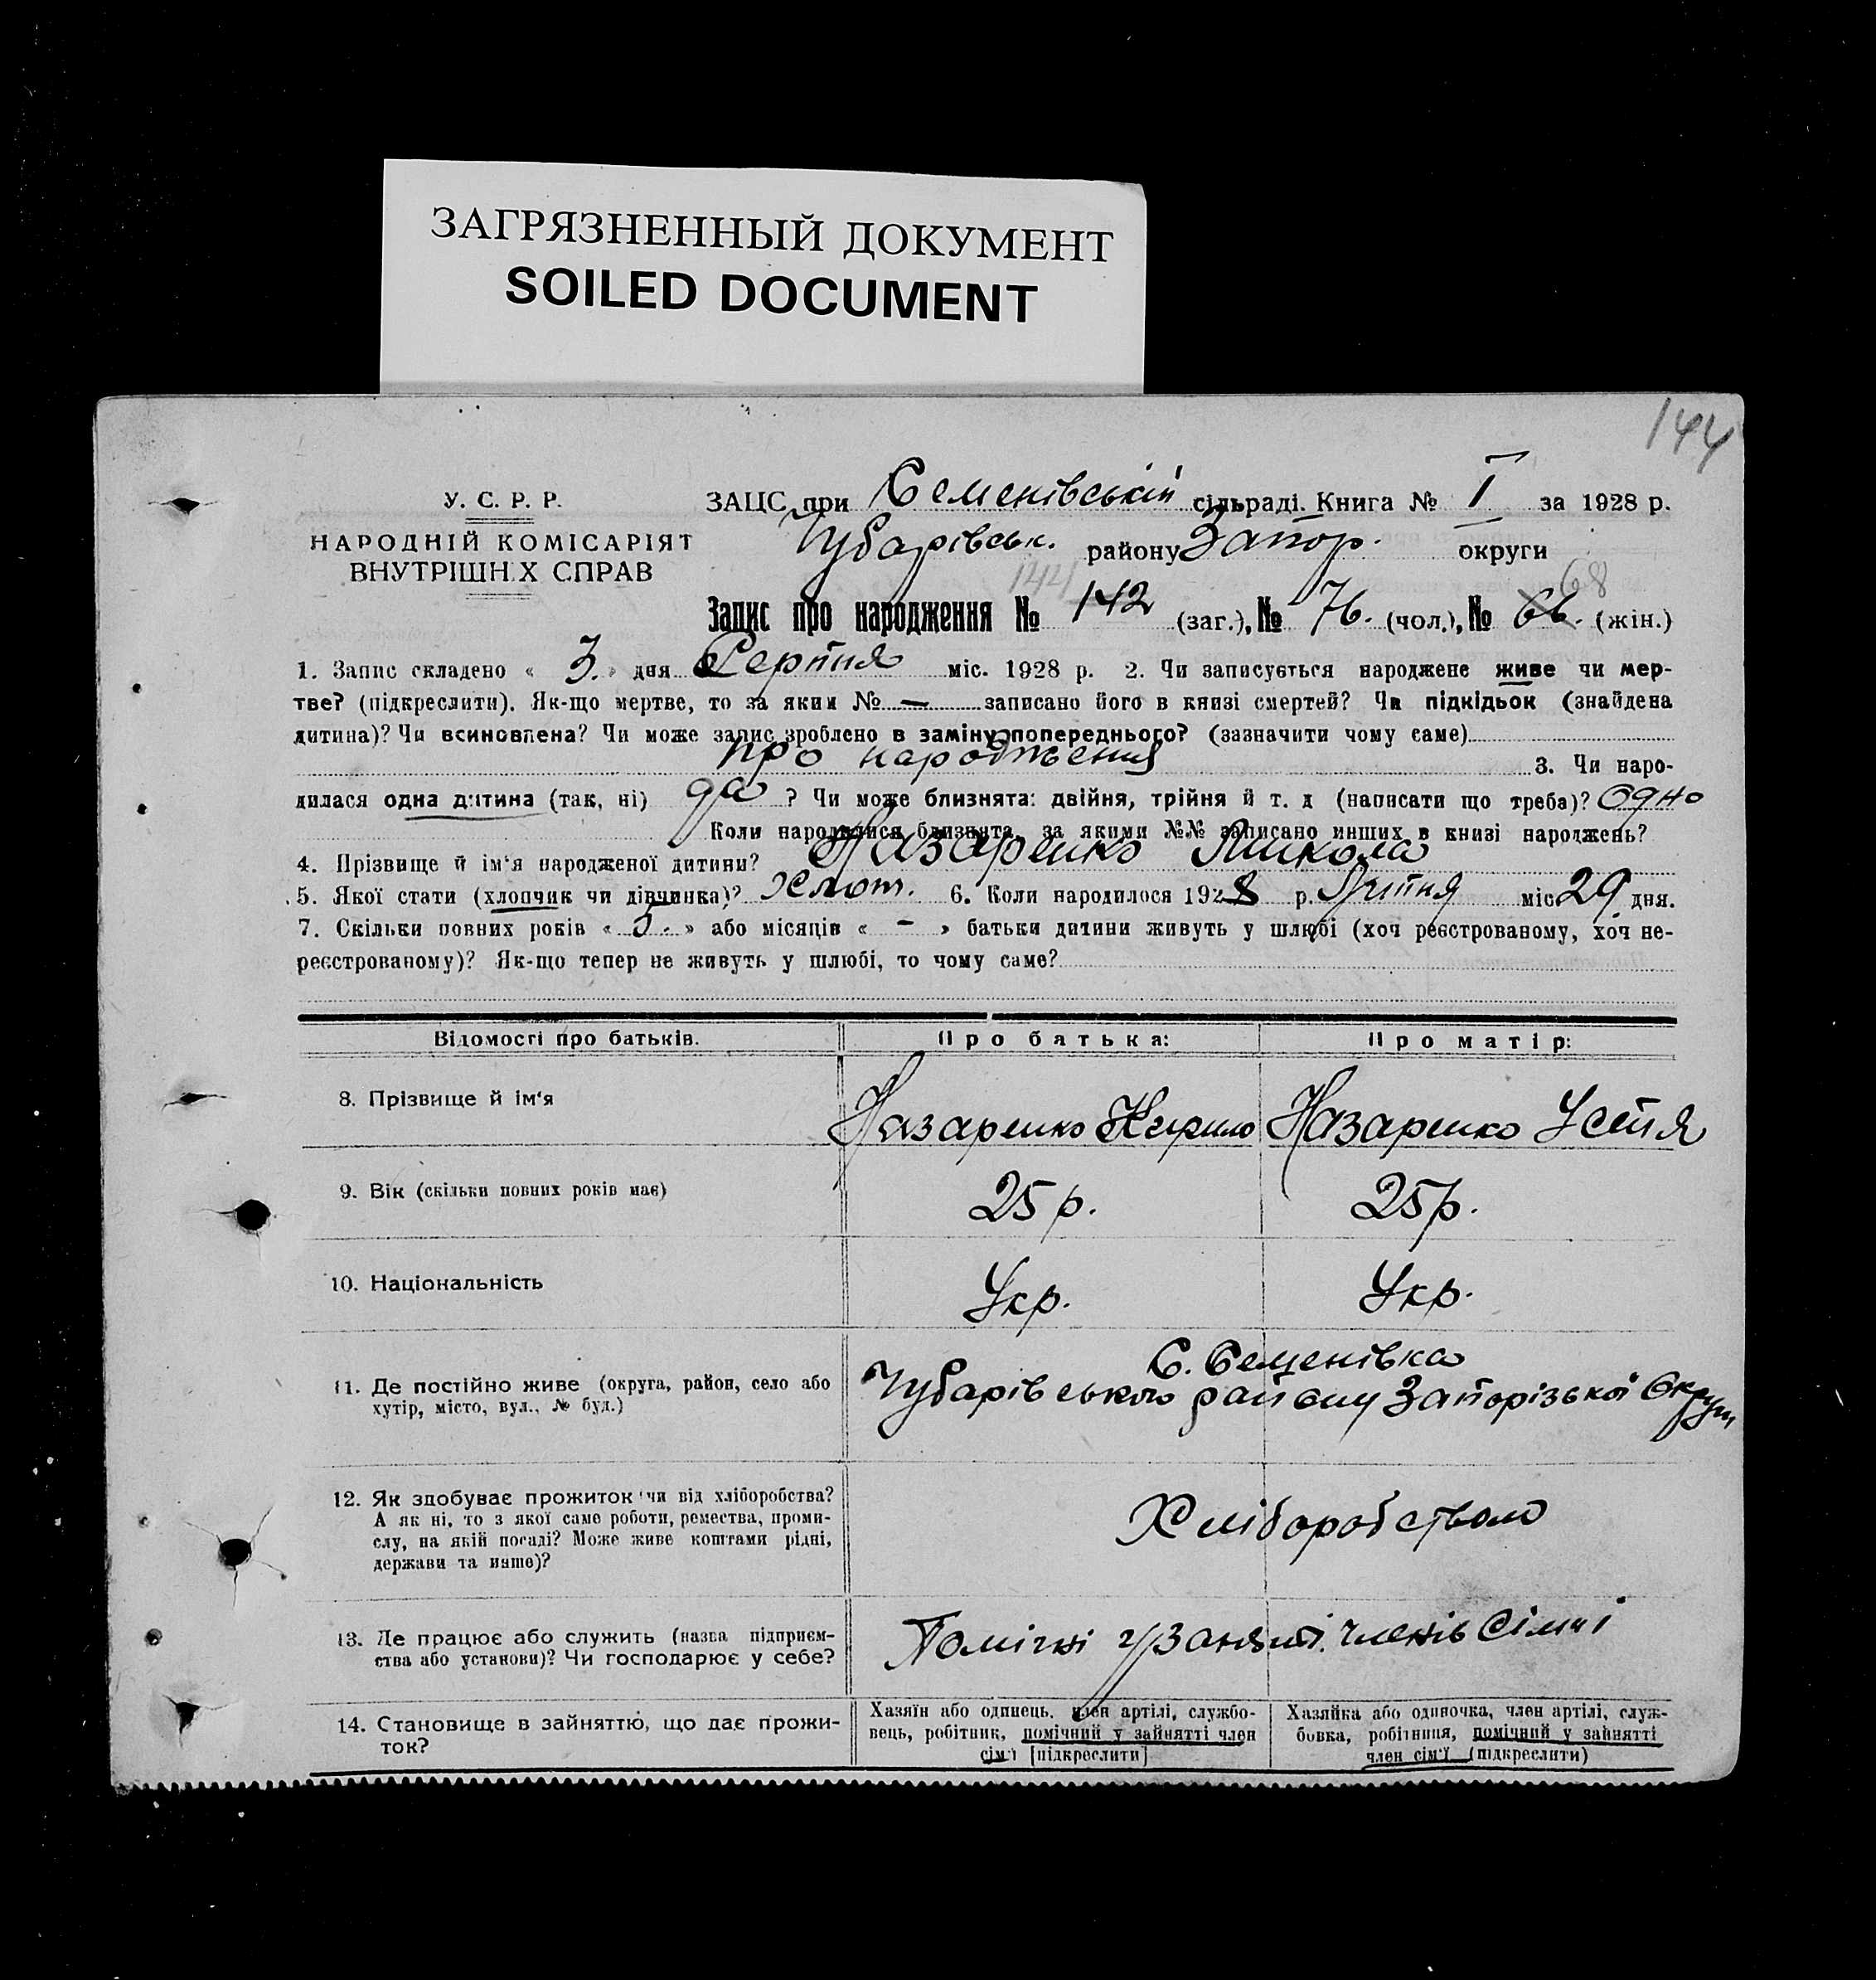 ЗАГРЯЗНЕННЫЙ ДОКУМЕНТ
SOILED DOCUMENT
144
У. С. Р. Р.
НАРОДНІЙ КОМІСАРІЯТ
ВНУТРІШНІХ СПРАВ
ЗАЦС при Семенівській сільраді. Книга № I за 1928 р.
Чубарівськ. району Запор. округи
144 68
Запис про народження № 142 (заг.), № 76. (чол.), № 66. (жін.)
1. Запис складено « 3. » дня Серпня міс. 1928 р. 2. Чи записується народжене живе чи мер-
тве? (підкреслити). Як-що мертве, то за яким № — записано його в книзі смертей? Чи підкідьок (знайдена
дитина)? Чи всиновлена? Чи може запис зроблено в заміну попереднього? (зазначити чому саме)
про народження 3. Чи наро-
дилася одна дитина (так, ні) да ? Чи може близнята: двійня, трійня й т. д (написати що треба)? Одно
Коли народилися близнята, за якими №№ записано инших в книзі народжень?
4. Прізвище й ім'я народженої дитини? Назаренко Микола
5. Якої стати (хлопчик чи дівчинка)? Хлоп. 6. Коли народилося 1928 р. Липня міс 29 дня.
7. Скільки повних років « 5. » або місяців « - » батьки дитини живуть у шлюбі (хоч реєстрованому, хоч не-
реєстрованому)? Як-що тепер не живуть у шлюбі, то чому саме?
Відомості про батьків. Про батька: Про матір:
8. Прізвище й ім'я Назаренко Кирило Назаренко Устя
9. Вік (скільки повних років має) 25 р. 25 р.
10. Національність Укр. Укр.
11. Де постійно живе (округа, район, село або
хутір, місто, вул., № буд.)
С. Семенівка
Чубарівського району Запорізької Округи
12. Як здобуває прожиток чи від хліборобства?
А як ні, то з якої саме роботи, ремества, проми-
слу, на якій посаді? Може живе коштами рідні,
держави та инше)?
Хліборобством
13. Де працює або служить (назва підприєм-
ства або установи)? Чи господарює у себе?
Помічні у занятті членів сімї
14. Становище в зайняттю, що дає прожи-
ток?
Хазяїн або одинець, член артілі, службо-
вець, робітник, помічний у зайнятті член
сім'ї [підкреслити]
Хазяйка або одиночка, член артілі, служ-
бовка, робітниця, помічний у зайнятті
член сім'ї (підкреслити)